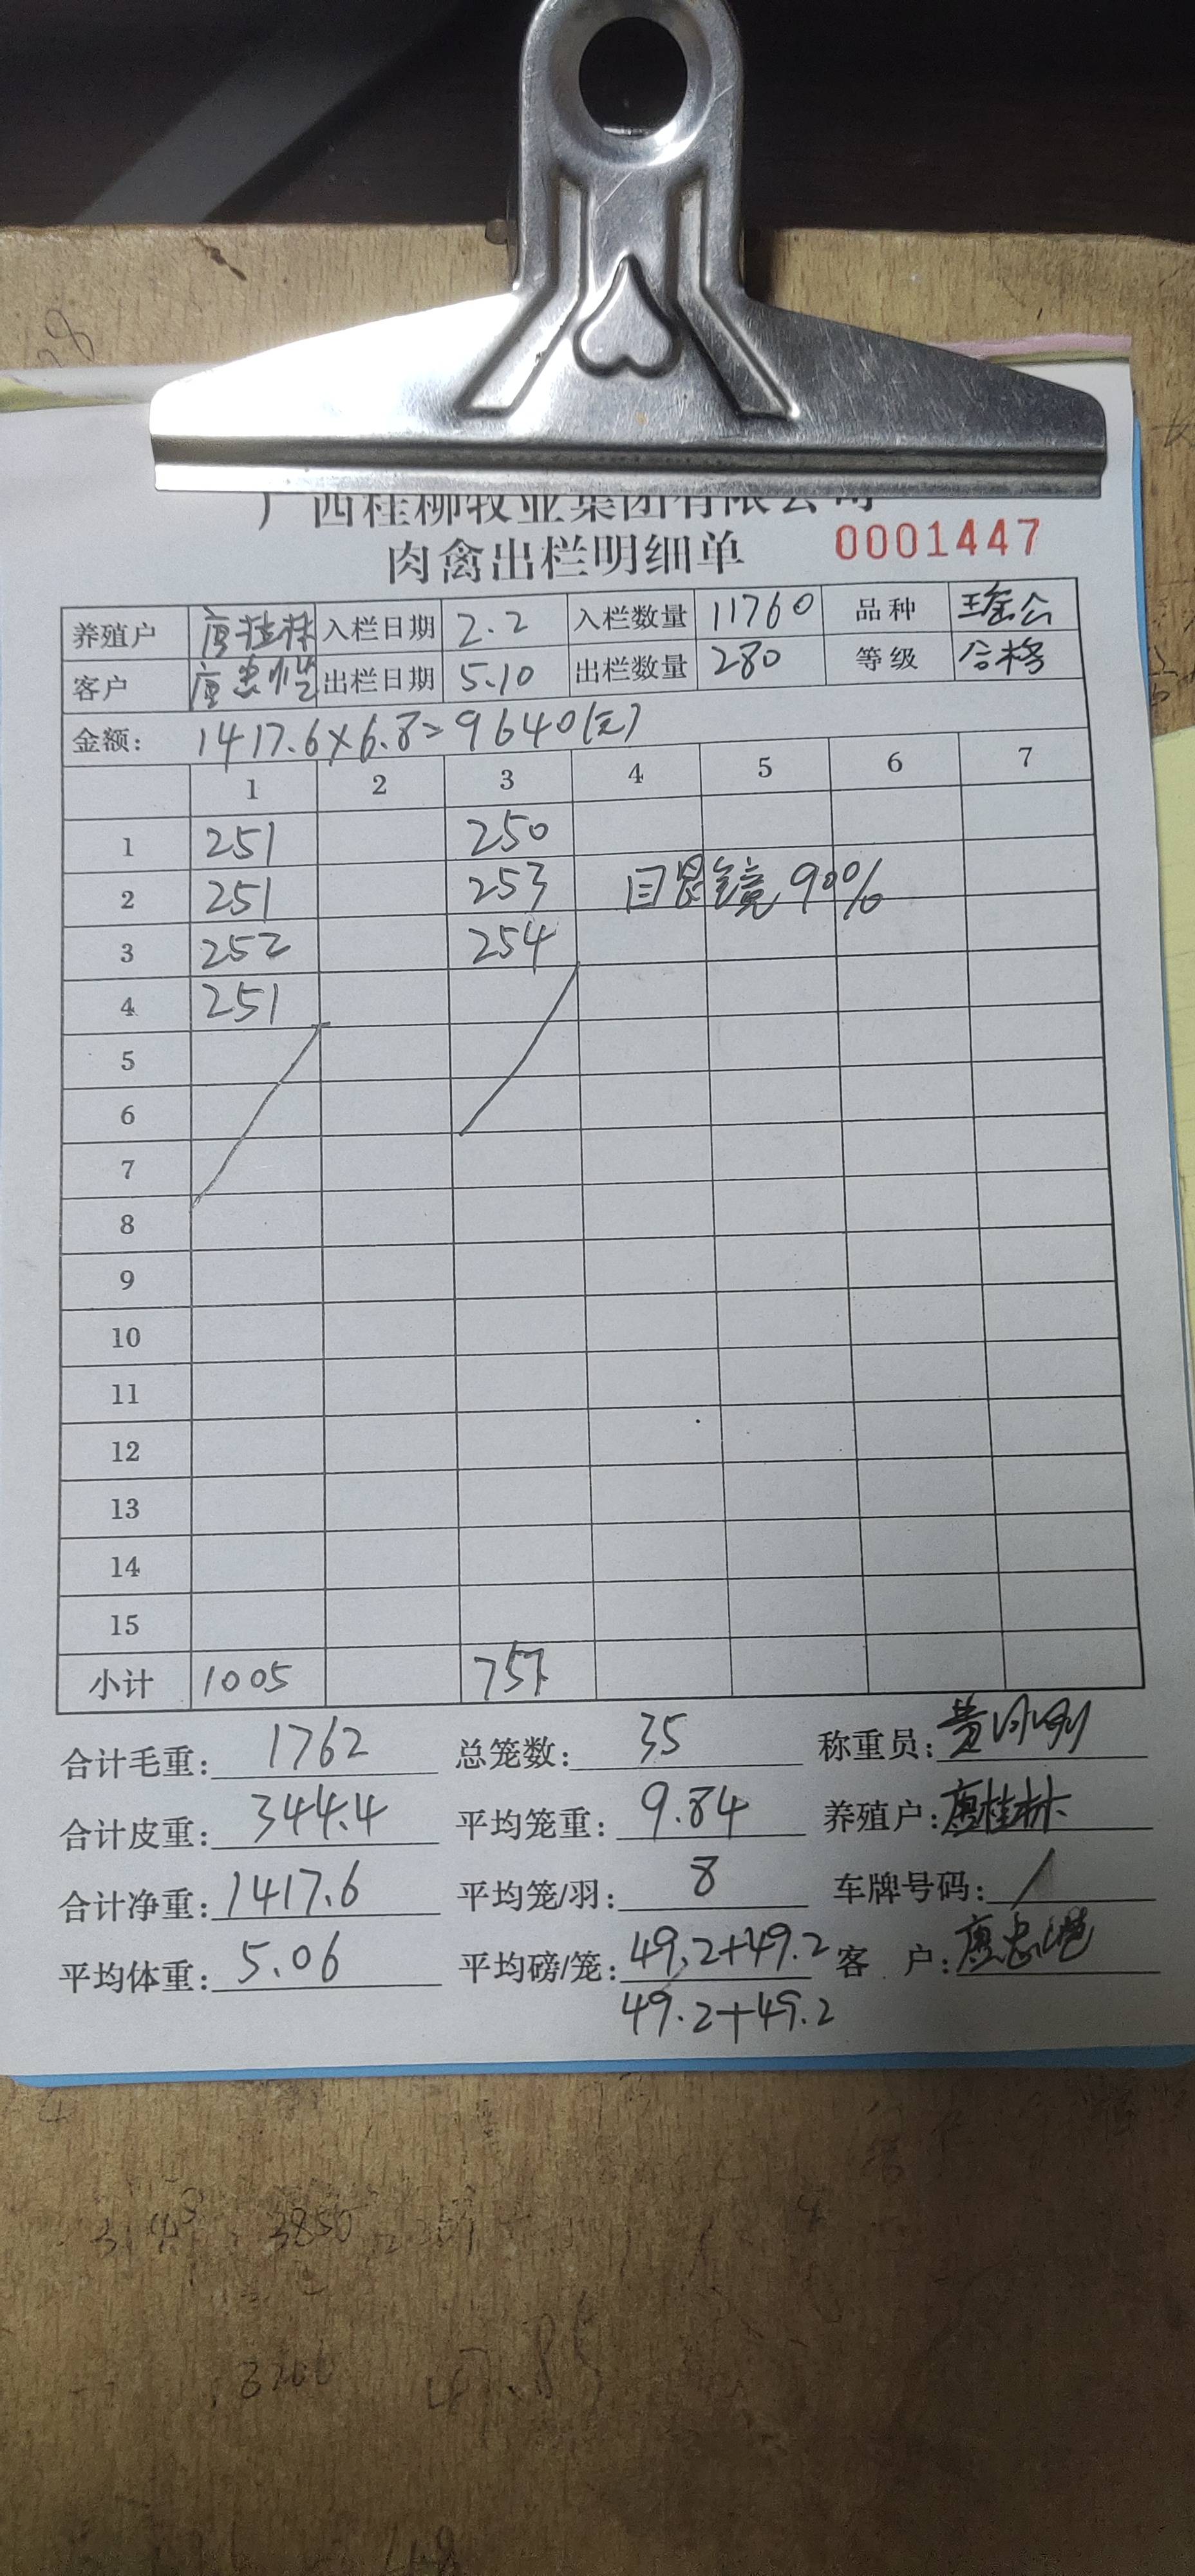 广西桂柳牧业集团有限公司
肉禽出栏明细单 0001447
养殖户 唐桂林 入栏日期 2.2 入栏数量 11760 品种
客户 唐忠 出栏日期 5.10 出栏数量 280 等级 合格
金额: 1417.6×6.8=9640(元)
1 2 3 4 5 6 7
1 251 250
2 251 253 眼镜90%
3 252 254
4 251
5
6
7
8
9
10
11
12
13
14
15
小计 1005 757
合计毛重: 1762 总笼数: 35 称重员: 黄
合计皮重: 344.4 平均笼重: 9.84 养殖户: 唐桂林
合计净重: 1417.6 平均笼/羽: 8 车牌号码: /
平均体重: 5.06 平均磅/笼: 49.2+49.2 客 户: 唐忠
49.2+49.2